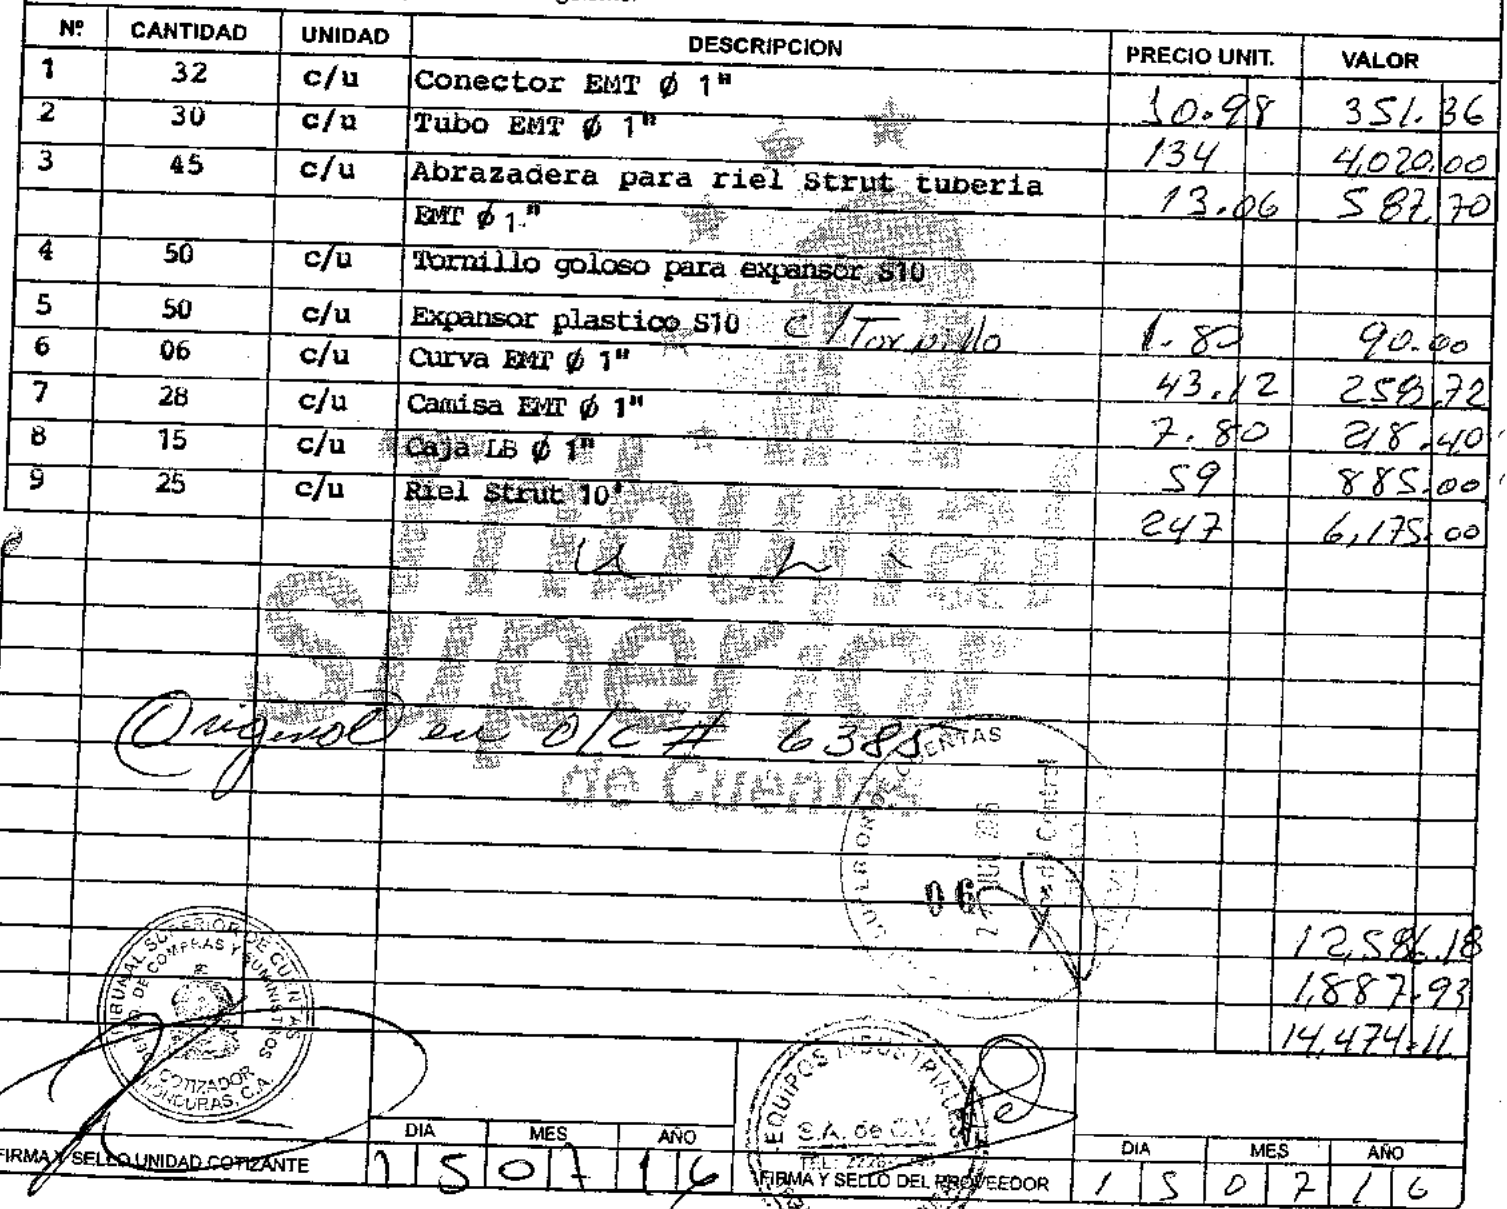 Nº CANTIDAD UNIDAD DESCRIPCION PRECIO UNIT. VALOR
1 32 c/u Conector EMT Ø 1" 10.98 351.36
2 30 c/u Tubo EMT Ø 1" 134 4,020.00
3 45 c/u Abrazadera para riel Strut tuberia 13.06 587.70
EMT Ø 1."
4 50 c/u Tornillo goloso para expansor S10
5 50 c/u Expansor plastico S10 c/Tornillo 1.80 90.00
6 06 c/u Curva EMT Ø 1" 43.12 258.72
7 28 c/u Camisa EMT Ø 1" 7.80 218.40
8 15 c/u Caja LB Ø 1" 59 885.00
9 25 c/u Riel Strut 10' 247 6,175.00
Tribunal
Superior
de Cuentas
Original en O/C # 6385
12,586.18
1,887.93
14,474.11
TRIBUNAL SUPERIOR DE CUENTAS
DE COMPRAS Y SUMINISTROS
COTIZADOR
HONDURAS, C.A.
EQUIPOS INDUSTRIALES
S.A. de C.V.
DIA MES AÑO
FIRMA Y SELLO UNIDAD COTIZANTE 15 07 16
FIRMA Y SELLO DEL PROVEEDOR
DIA MES AÑO
15 07 16